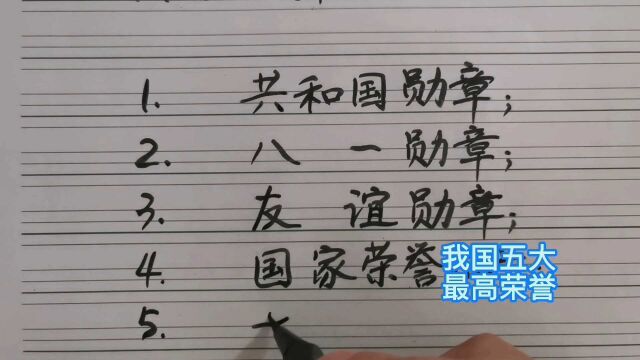 1. 共和国勋章；
2. 八 一勋章；
3. 友 谊勋章；
4. 国家荣誉
我国五大
最高荣誉
5.